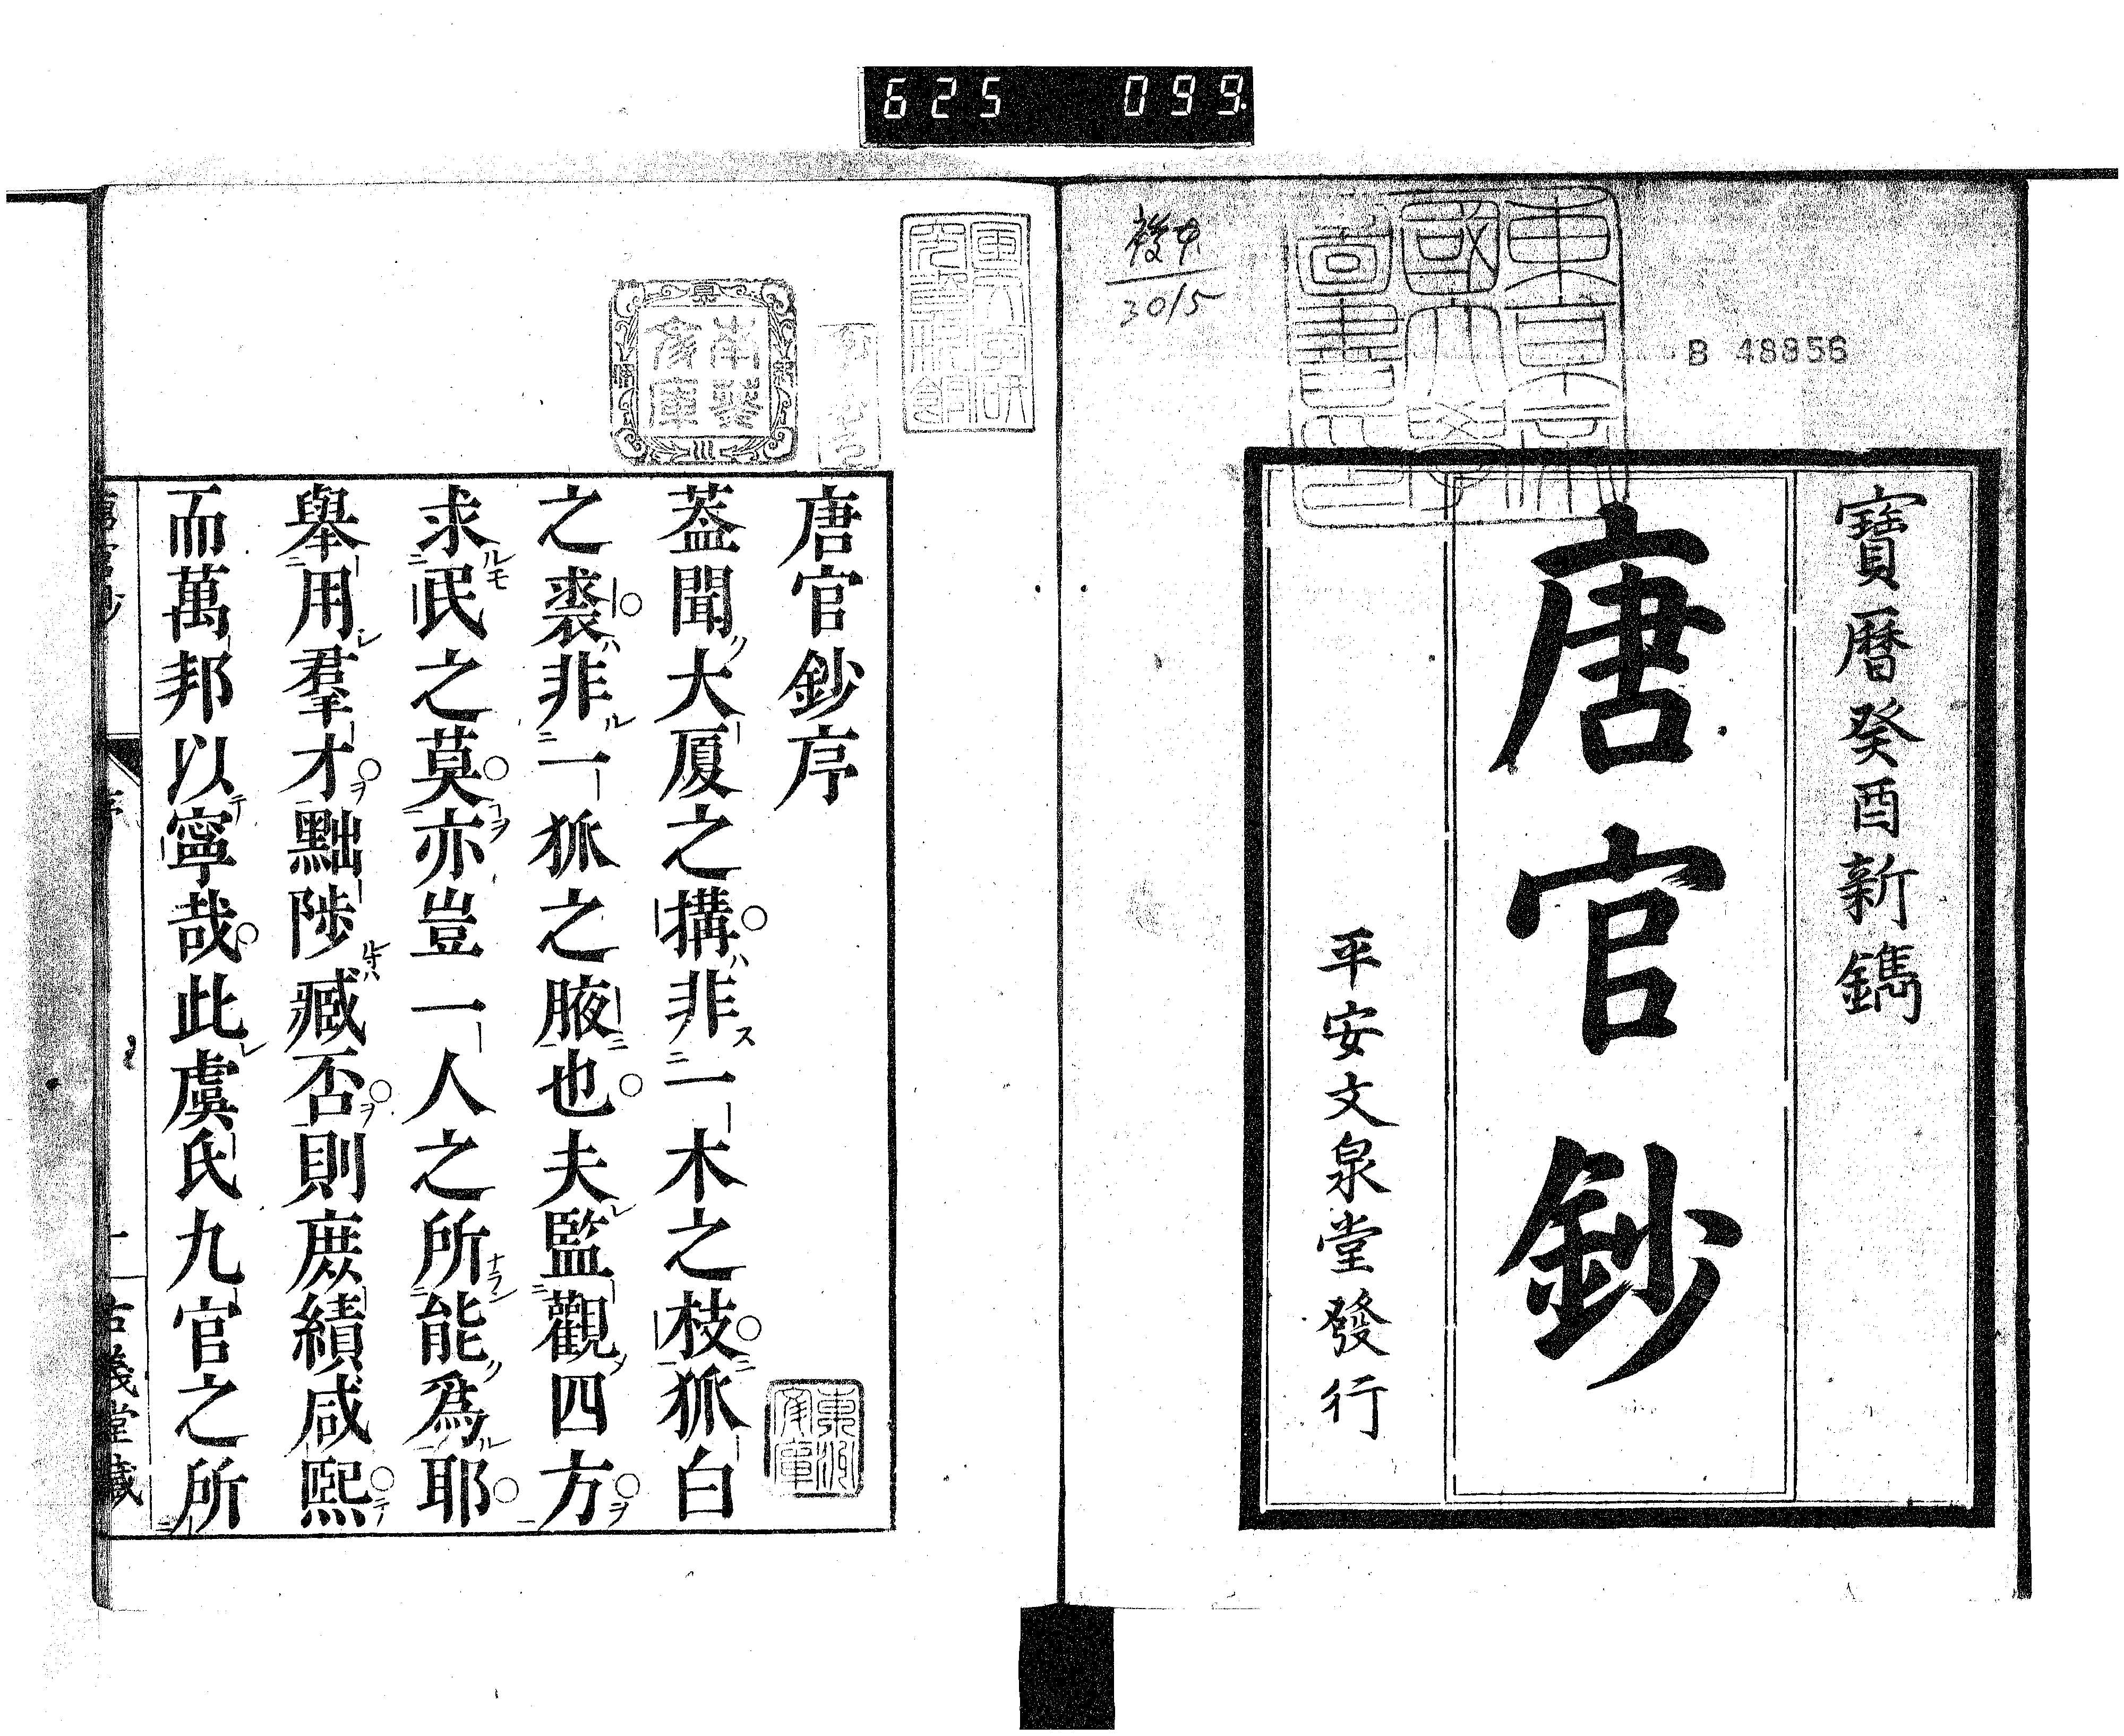 625 099
B 48956
3015
寶曆癸酉新鐫
唐官鈔
平安文泉堂發行
唐官鈔序
葢聞大厦之搆非一木之枝狐白
之裘非一狐之腋也夫監觀四方
求民之莫亦豈一人之所能爲耶
舉用羣才黜陟臧否則庶績咸熙
而萬邦以寧哉此虞氏九官之所
唐官鈔
序
一
古義堂藏